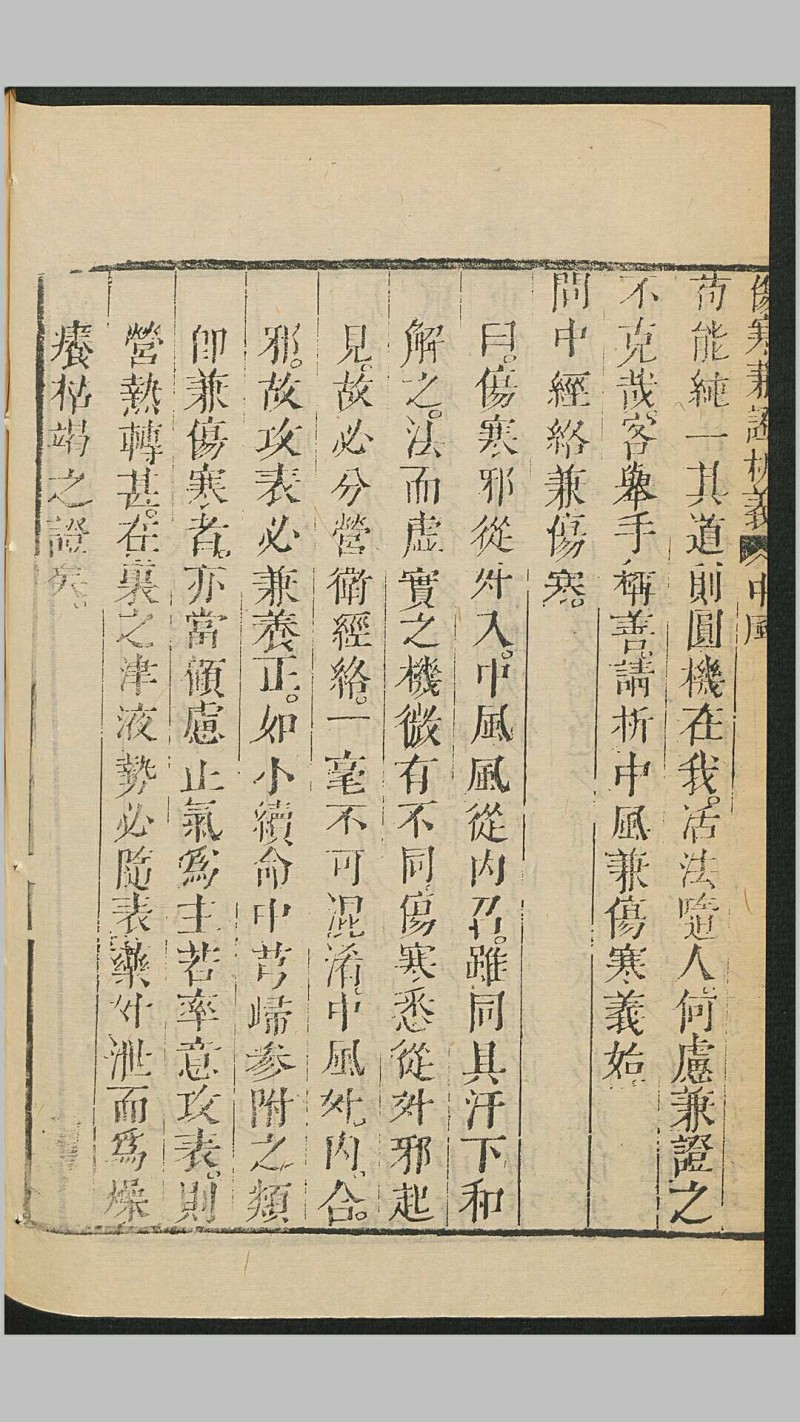 傷寒兼證析義 中風
苟能純一其道則圓機在我。活法隨人。何慮兼證之
不克哉。客舉手稱善。請析中風兼傷寒義始。
問中經絡兼傷寒。
曰。傷寒邪從外入。中風風從內召。雖同其汗下和
解之。法而虛實之機微有不同。傷寒悉從外邪起
見。故必分營衛經絡。一毫不可混淆。中風外。內。合。
邪。故攻表必兼養正。如小續命中芎歸參附之類
卽兼傷寒者。亦當傾慮止氣爲主若率意攻表。則
營熱轉甚。在裏之津液勢必隨表藥外泄而爲燥
癢枯竭之證矣。